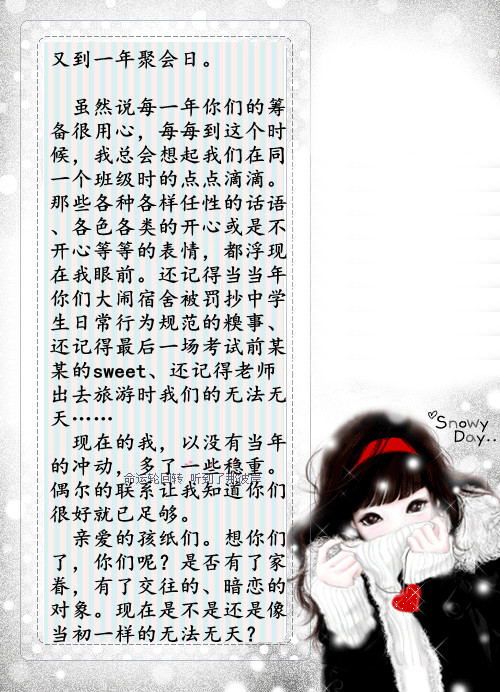 又到一年聚会日。
虽然说每一年你们的筹
备很用心，每每到这个时
候，我总会想起我们在同
一个班级时的点点滴滴。
那些各种各样任性的话语
、各色各类的开心或是不
开心等等的表情，都浮现
在我眼前。还记得当当年
你们大闹宿舍被罚抄中学
生日常行为规范的糗事、
还记得最后一场考试前某
某的sweet、还记得老师
出去旅游时我们的无法无
天……
现在的我，以没有当年
的冲动，多了一些稳重。
命运轮回转 听到了那彼岸
偶尔的联系让我知道你们
很好就已足够。
亲爱的孩纸们。想你们
了，你们呢？是否有了家
眷，有了交往的、暗恋的
对象。现在是不是还是像
当初一样的无法无天？
Snowy
Day..